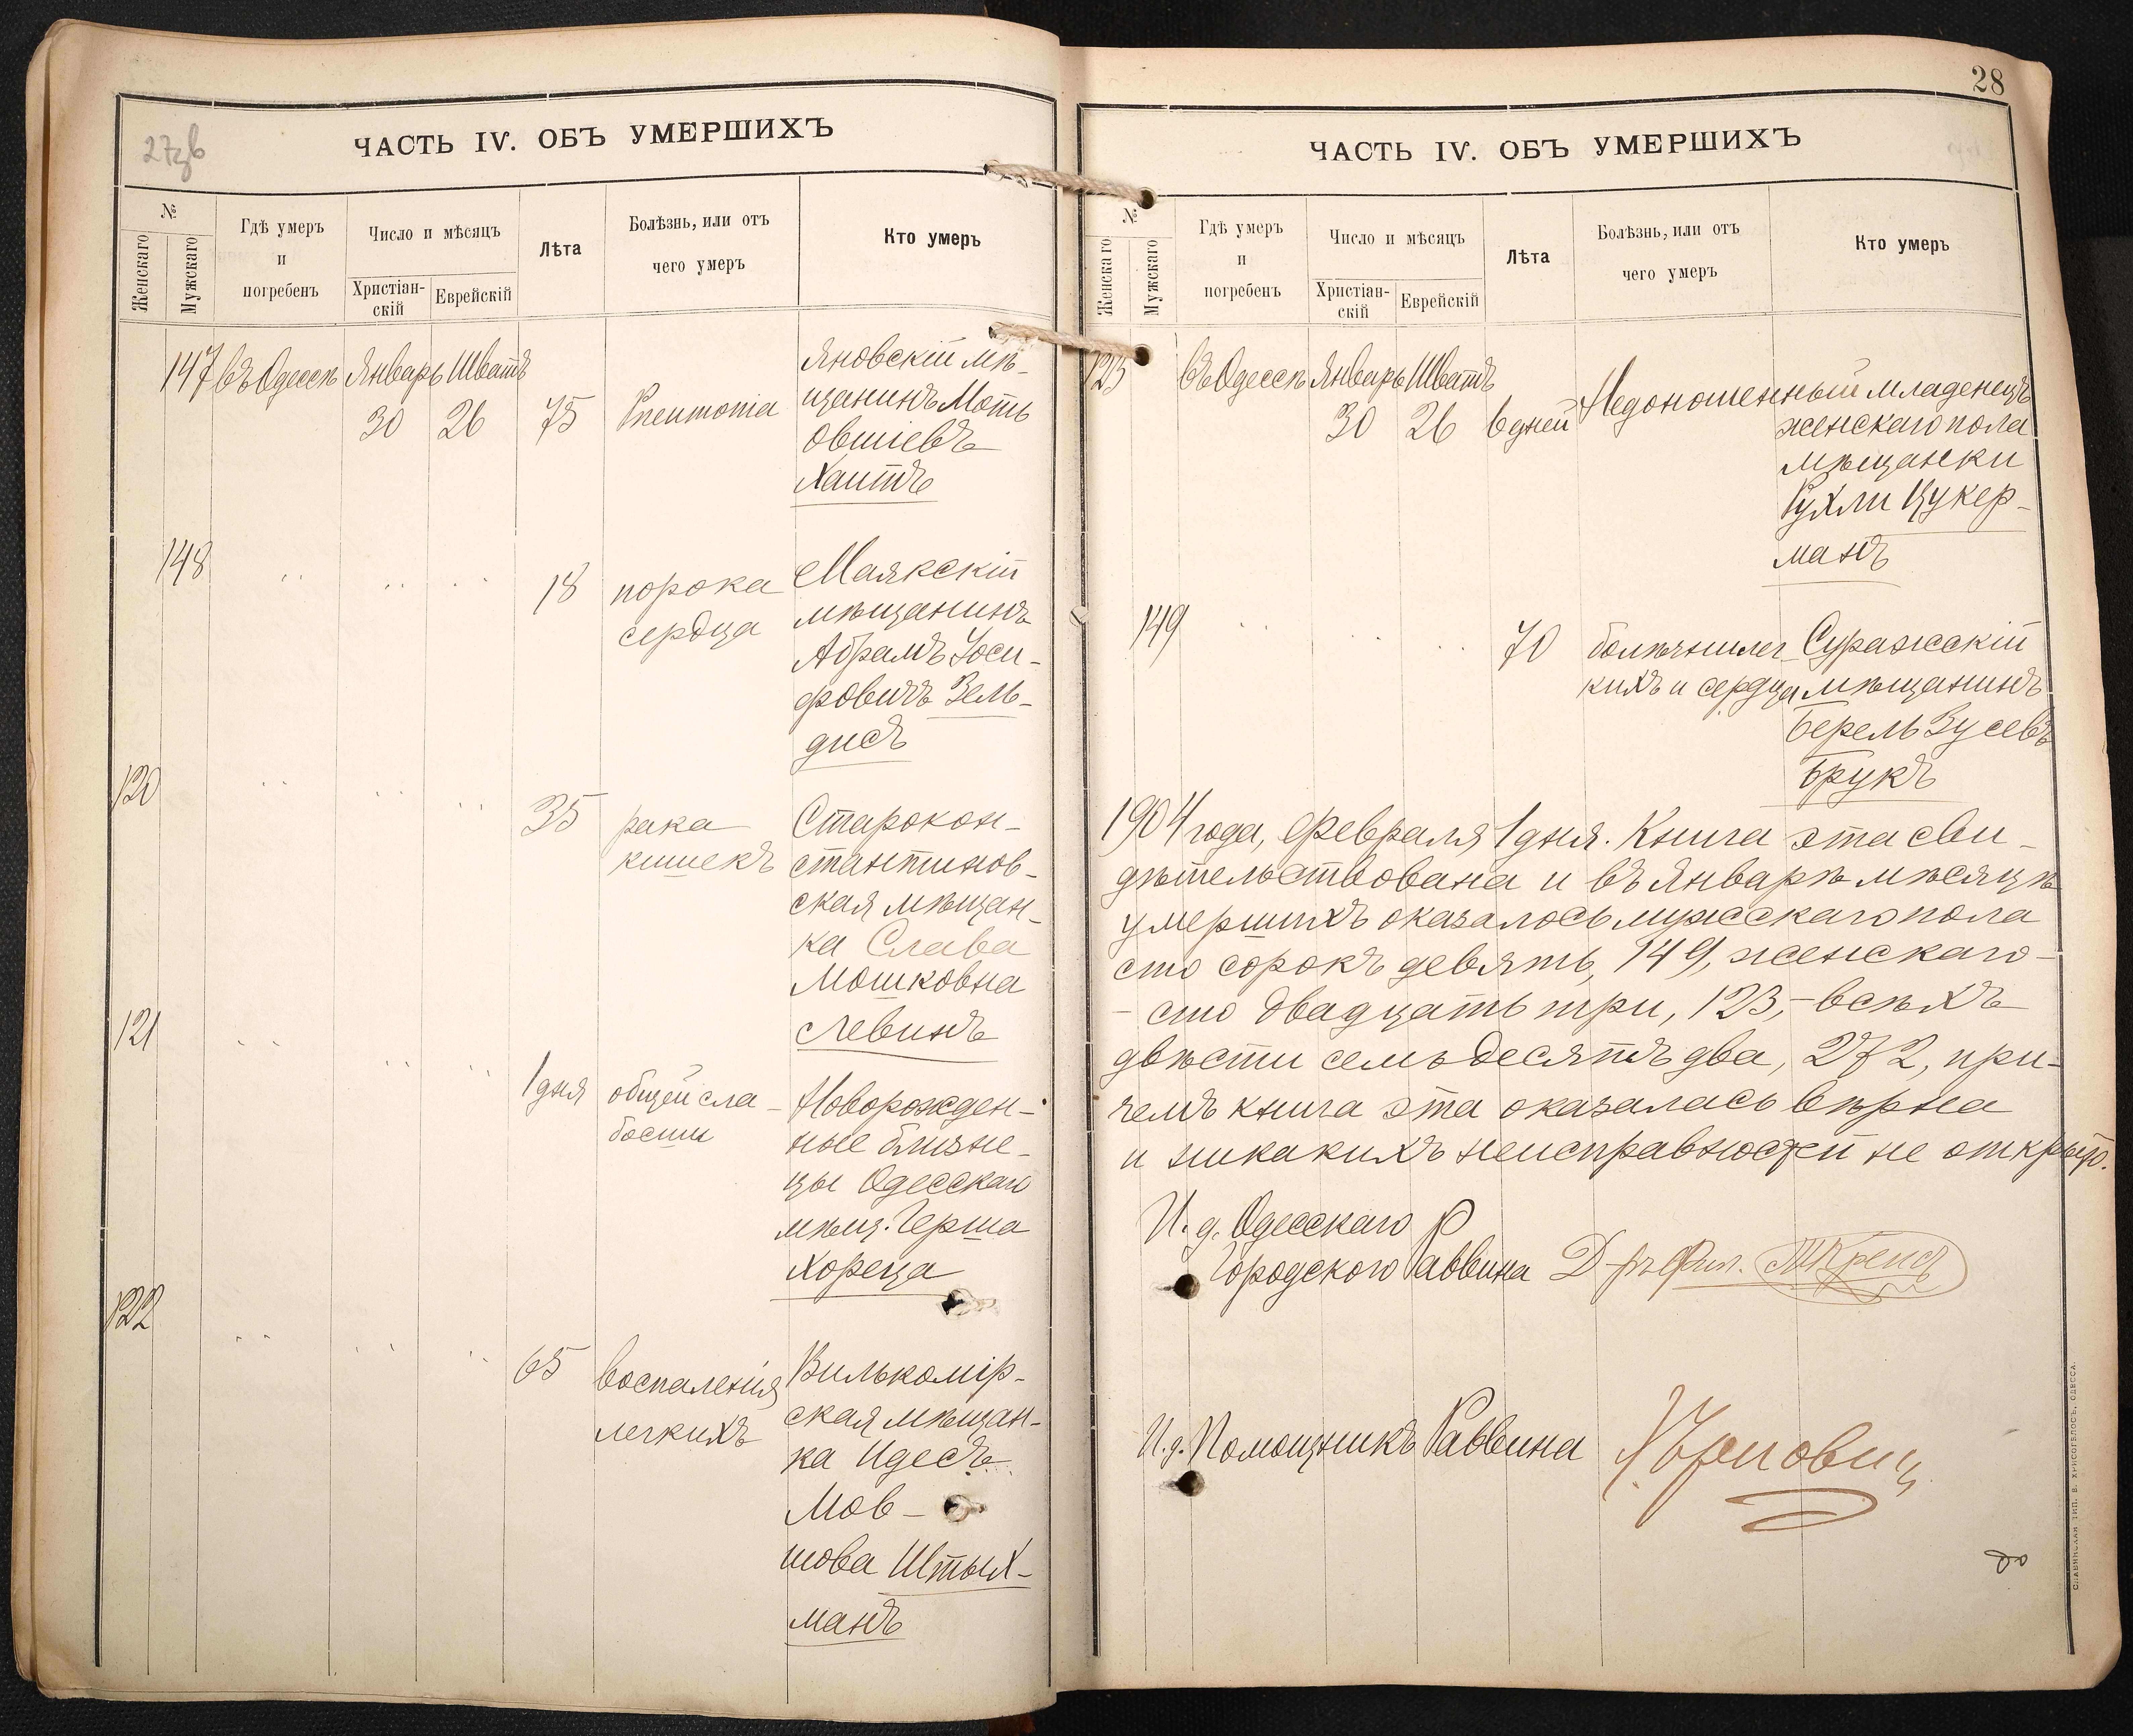 27зв
ЧАСТЬ IV. ОБЪ УМЕРШИХЪ
№
Женскаго
Мужскаго
Гдѣ умеръ
и
погребенъ
Число и мѣсяцъ
Христіан-
скій
Еврейскій
Лѣта
Болѣзнь, или отъ
чего умеръ
Кто умеръ
147 въ Одессѣ Январь Шватъ
30 26 75 Pneumonia
Яновскій мѣ-
щанинъ Моть
Овшіевъ
Хаитъ
148 " " " 18 порока
сердца
Маякскій
мѣщанинъ
Абрамъ Іоси-
фовичъ Зель-
дисъ
120 " " " 35 рака
кишекъ
Старокон-
стантинов-
ская мѣщан-
ка Слава
Мошковна
Левинъ
121 " " " 1 дня общей сла-
бости
Новорожден-
ные близне-
цы Одесскаго
мѣщ. Герша
Хореца
122 " " " 65 воспаленія
легкихъ
Вилькомір-
ская мѣщан-
ка Идесъ
Мов-
шова Штых-
манъ
28
ЧАСТЬ IV. ОБЪ УМЕРШИХЪ
№
Женскаго
Мужскаго
Гдѣ умеръ
и
погребенъ
Число и мѣсяцъ
Христіан-
скій
Еврейскій
Лѣта
Болѣзнь, или отъ
чего умеръ
Кто умеръ
123 въ Одессѣ Январь Шватъ
30 26 6 дней
Недоношенный младенецъ
женскаго пола
мѣщанки
Рухли Цукер-
манъ
149 " " " 70 болѣзни лег-
кихъ и сердца
Суражскій
мѣщанинъ
Берель Зусевъ
Брукъ
1904 года, февраля 1 дня. Книга эта сви-
дѣтельствована и въ Январѣ мѣсяцѣ
умершихъ оказалось мужскаго пола
сто сорокъ девять, 149, женскаго -
- сто двадцать три, 123, - всѣхъ
двѣсти семьдесятъ два, 272, при-
чемъ книга эта оказалась вѣрна
и никакихъ неисправностей не открыто.
И. д. Одесскаго
Городского Раввина Д-ръ Фил. Крепсъ
И. д. Помощникъ Раввина
СЛАВЯНСКАЯ ТИП. Е. ХРИСОГЕЛОСЪ, ОДЕССА.